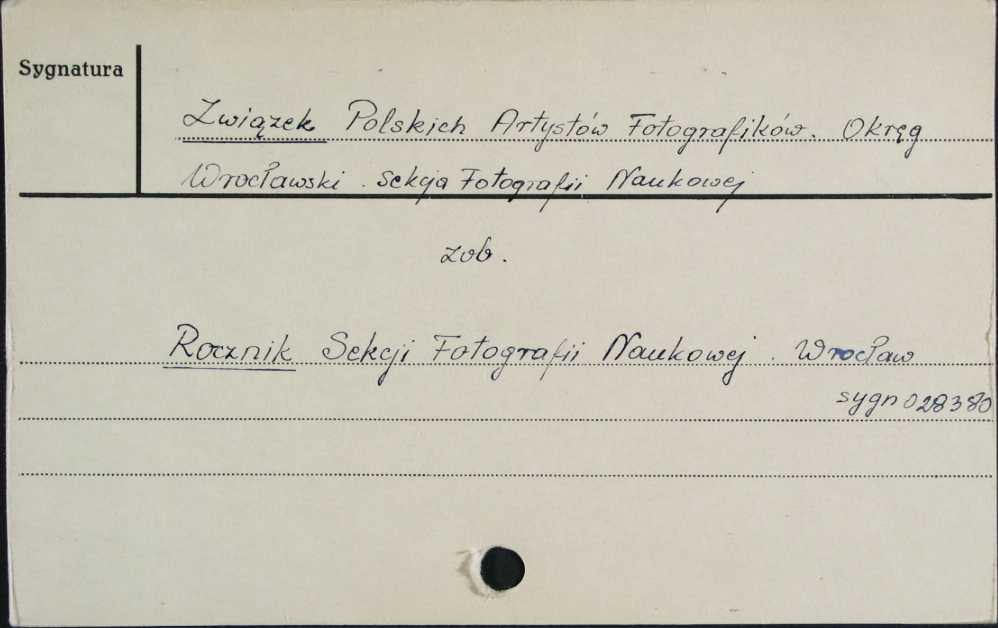 Sygnatura
Związek Polskich Artystów Fotografików. Okręg
Wrocławski. Sekcja Fotografii Naukowej
zob.
Rocznik Sekcji Fotografii Naukowej. Wrocław
sygn 028380